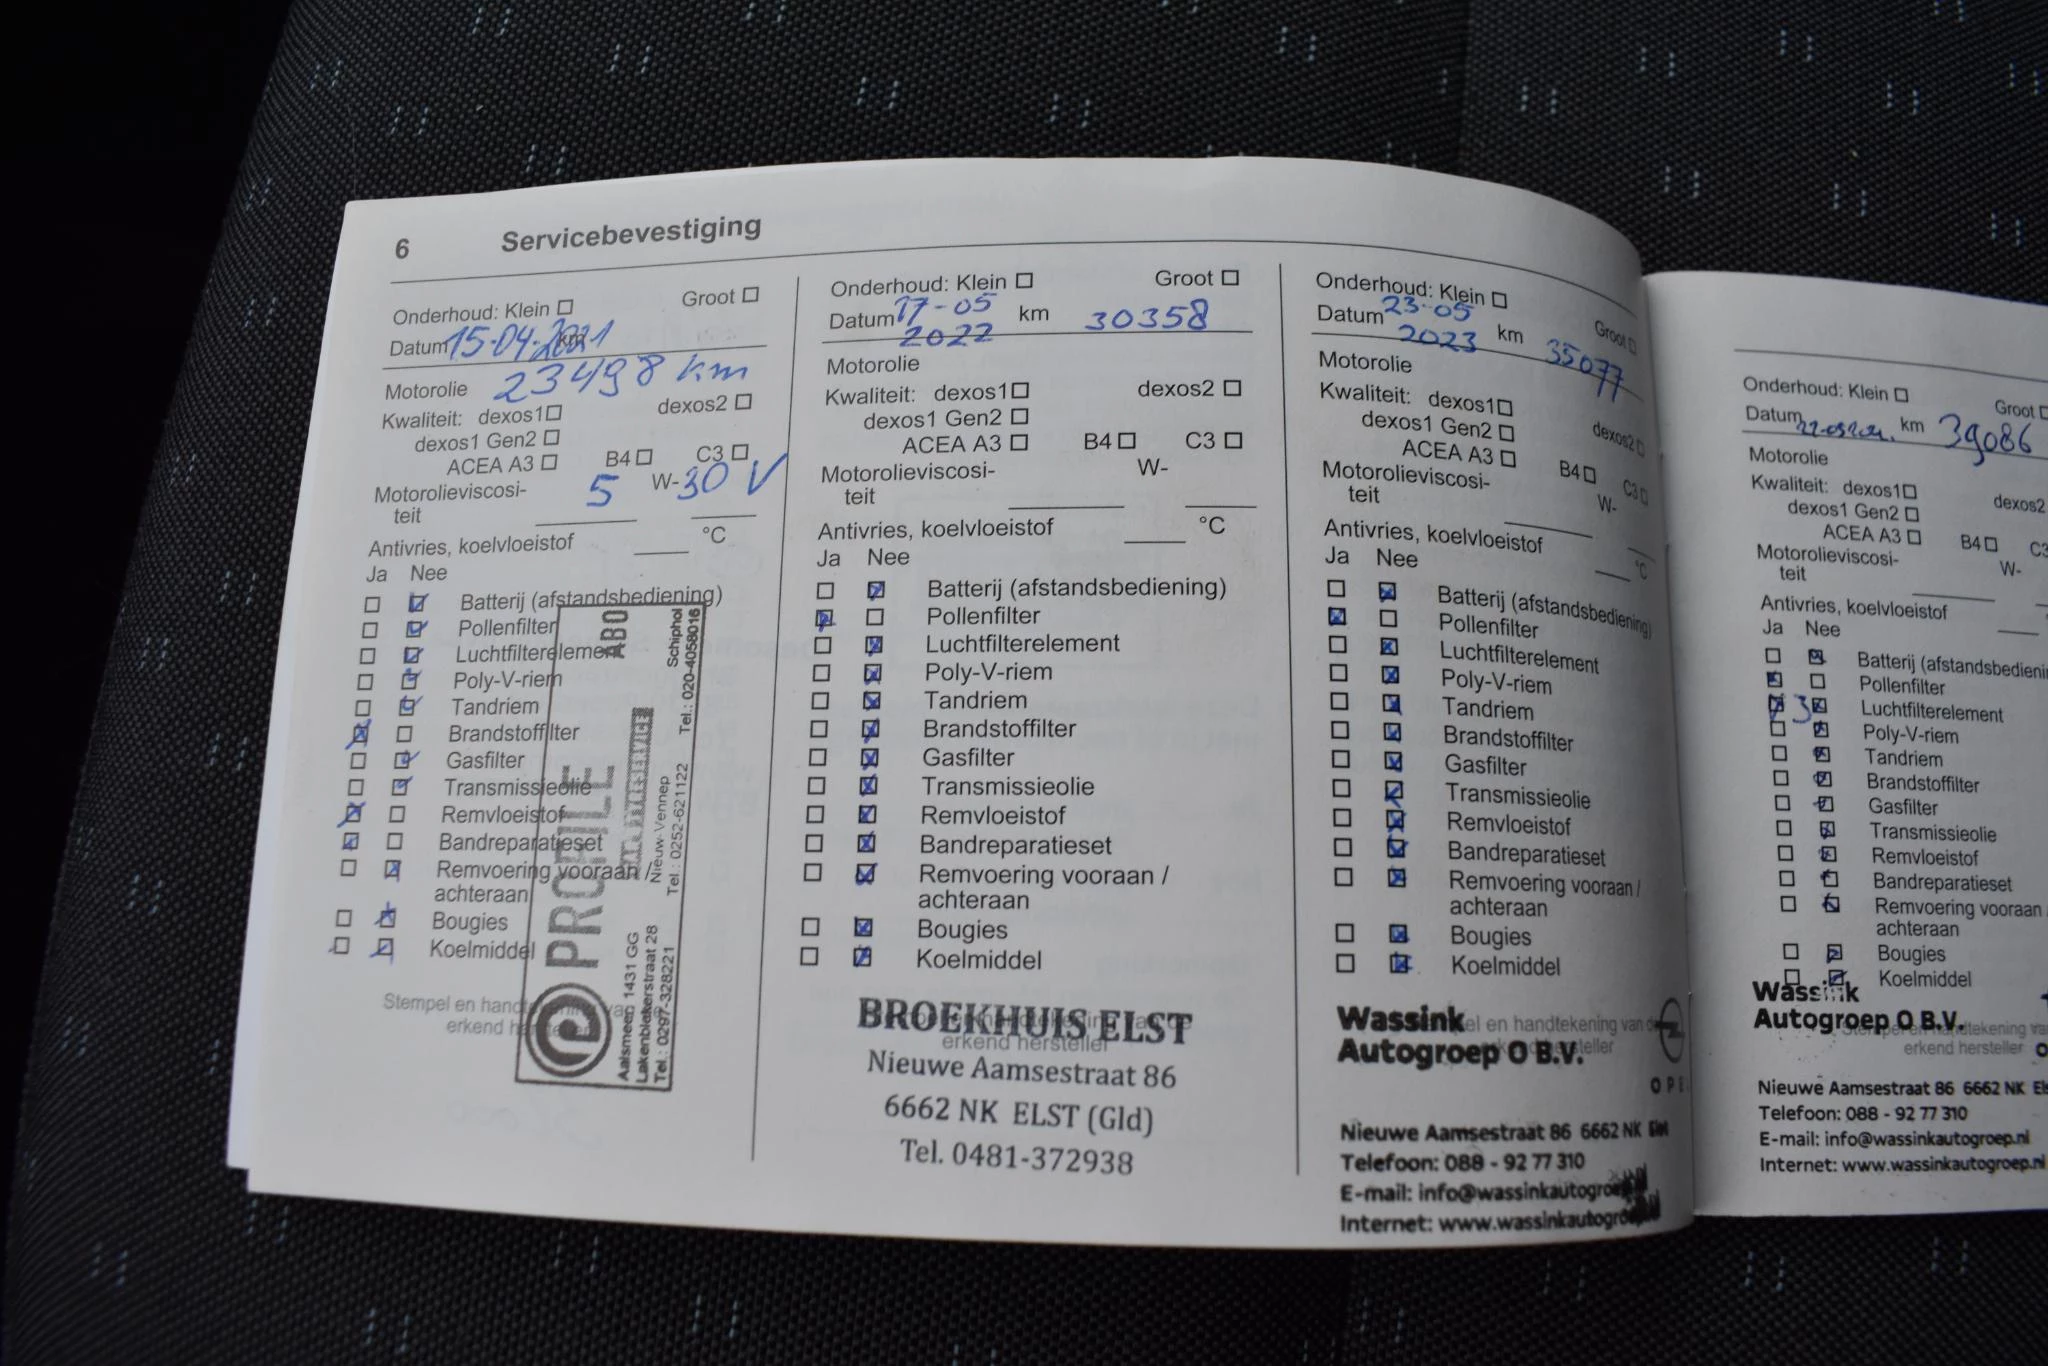 6 Servicebevestiging
Onderhoud: Klein Groot
Datum 15-04-2021 km
Motorolie 23498 km
Kwaliteit: dexos1 dexos2
dexos1 Gen2
ACEA A3 B4 C3
Motorolieviscosi-
teit 5 W-30 V
Antivries, koelvloeistof °C
Ja Nee
Batterij (afstandsbediening)
Pollenfilter
Luchtfilterelement
Poly-V-riem
Tandriem
Brandstoffilter
Gasfilter
Transmissieolie
Remvloeistof
Bandreparatieset
Remvoering vooraan /
achteraan
Bougies
Koelmiddel
Stempel en handtekening van
erkend
PROFILE
ABO
Aalsmeer 1431 GG
Lakenblekerstraat 28
Tel.: 0297-328221
Nieuw-Vennep
Tel.: 0252-621122
Schiphol
Tel.: 020-4058016
Onderhoud: Klein Groot
Datum 17-05 km 30358
2022
Motorolie
Kwaliteit: dexos1 dexos2
dexos1 Gen2
ACEA A3 B4 C3
Motorolieviscosi- W-
teit
Antivries, koelvloeistof °C
Ja Nee
Batterij (afstandsbediening)
Pollenfilter
Luchtfilterelement
Poly-V-riem
Tandriem
Brandstoffilter
Gasfilter
Transmissieolie
Remvloeistof
Bandreparatieset
Remvoering vooraan /
achteraan
Bougies
Koelmiddel
BROEKHUIS ELST
erkend hersteller
Nieuwe Aamsestraat 86
6662 NK ELST (Gld)
Tel. 0481-372938
Onderhoud: Klein Groot
Datum 23-05 km 35077
2023
Motorolie
Kwaliteit: dexos1 dexos2
dexos1 Gen2
ACEA A3 B4 C3
Motorolieviscosi- W-
teit
Antivries, koelvloeistof °C
Ja Nee
Batterij (afstandsbediening)
Pollenfilter
Luchtfilterelement
Poly-V-riem
Tandriem
Brandstoffilter
Gasfilter
Transmissieolie
Remvloeistof
Bandreparatieset
Remvoering vooraan /
achteraan
Bougies
Koelmiddel
Wassink el en handtekening van de
Autogroep O B.V. hersteller
OPE
Nieuwe Aamsestraat 86 6662 NK Elst
Telefoon: 088 - 92 77 310
E-mail: info@wassinkautogroep.nl
Internet: www.wassinkautogroep.nl
Onderhoud: Klein Groot
Datum km 39086
Motorolie
Kwaliteit: dexos1 dexos2
dexos1 Gen2
ACEA A3 B4 C3
Motorolieviscosi- W-
teit
Antivries, koelvloeistof
Ja Nee
Batterij (afstandsbedienin
Pollenfilter
Luchtfilterelement
Poly-V-riem
Tandriem
Brandstoffilter
Gasfilter
Transmissieolie
Remvloeistof
Bandreparatieset
Remvoering vooraan
achteraan
Bougies
Koelmiddel
Wassink
Autogroep O B.V.
erkend hersteller
Nieuwe Aamsestraat 86 6662 NK Els
Telefoon: 088 - 92 77 310
E-mail: info@wassinkautogroep.nl
Internet: www.wassinkautogroep.nl